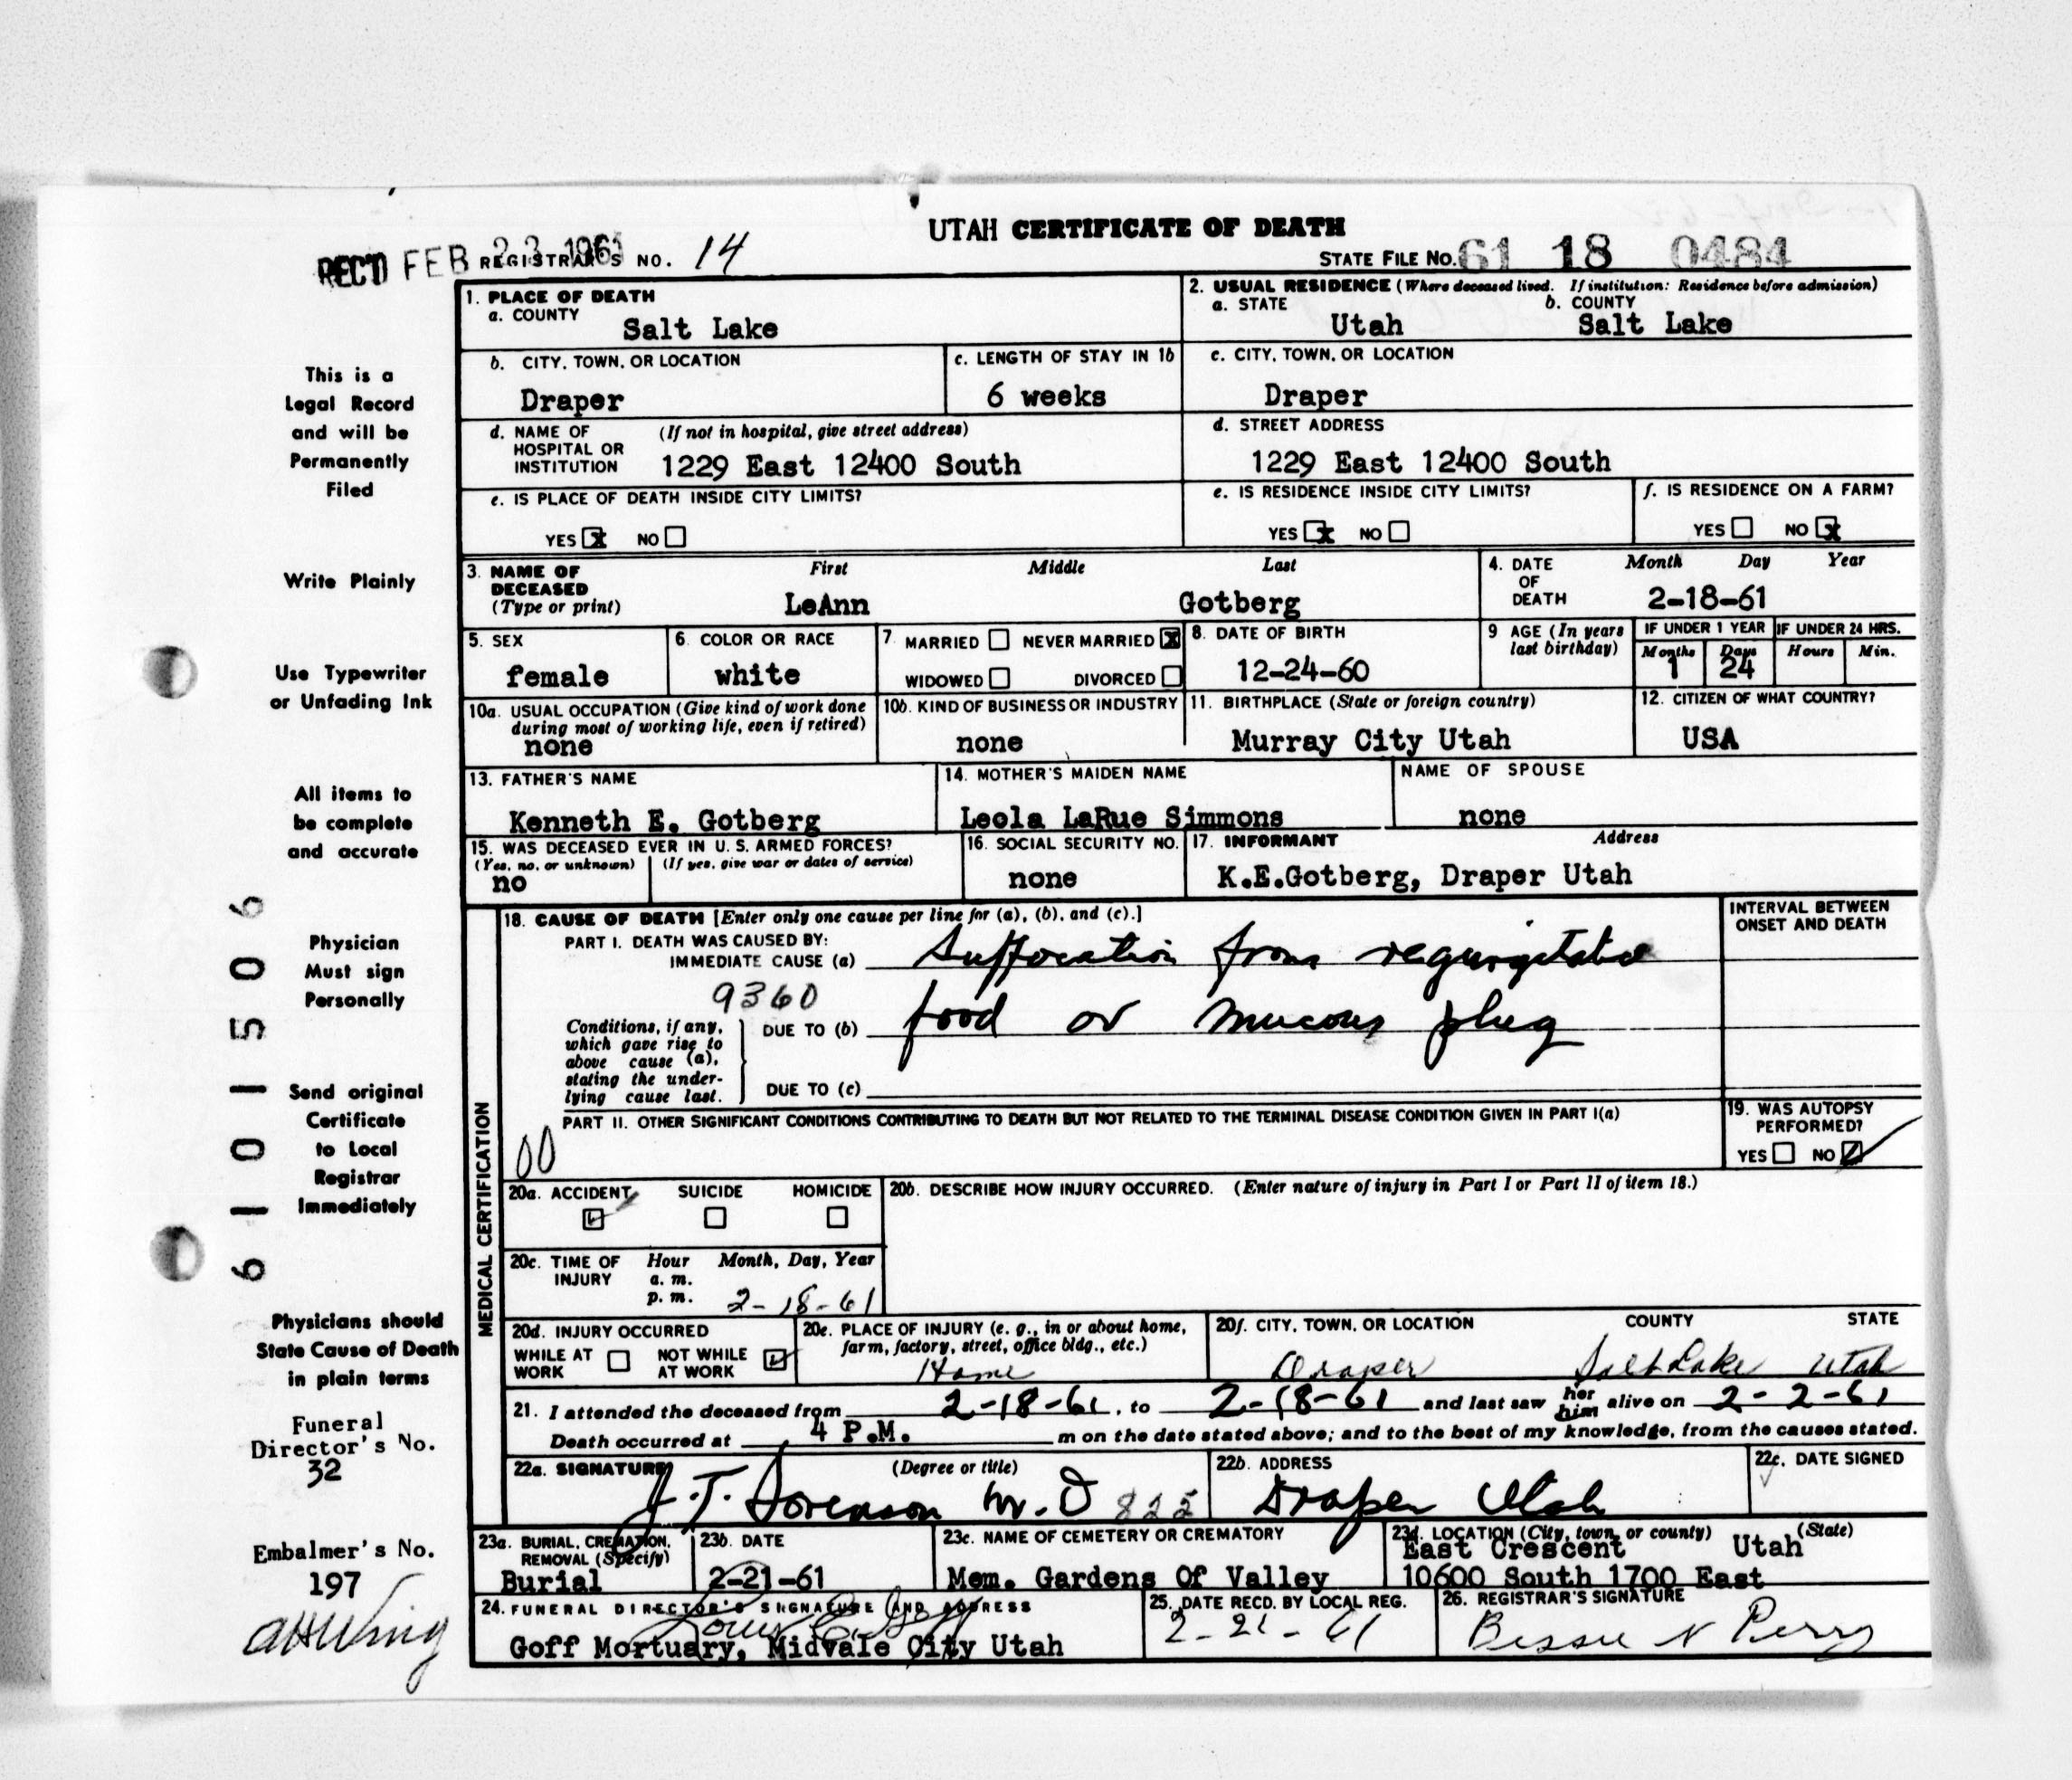 UTAH CERTIFICATE OF DEATH
REC'D FEB 23 1961 REGISTRAR'S NO. 14 STATE FILE NO. 61 18 0484
1. PLACE OF DEATH
a. COUNTY
Salt Lake
2. USUAL RESIDENCE (Where deceased lived. If institution: Residence before admission)
a. STATE b. COUNTY
Utah Salt Lake
b. CITY, TOWN, OR LOCATION
Draper
c. LENGTH OF STAY IN 1b
6 weeks
c. CITY, TOWN, OR LOCATION
Draper
d. NAME OF HOSPITAL OR INSTITUTION (If not in hospital, give street address)
1229 East 12400 South
d. STREET ADDRESS
1229 East 12400 South
e. IS PLACE OF DEATH INSIDE CITY LIMITS?
YES x NO
e. IS RESIDENCE INSIDE CITY LIMITS?
YES x NO
f. IS RESIDENCE ON A FARM?
YES NO x
3. NAME OF DECEASED (Type or print) First Middle Last
LeAnn Gotberg
4. DATE OF DEATH Month Day Year
2-18-61
5. SEX
female
6. COLOR OR RACE
white
7. MARRIED NEVER MARRIED X
WIDOWED DIVORCED
8. DATE OF BIRTH
12-24-60
9 AGE (In years last birthday)
IF UNDER 1 YEAR IF UNDER 24 HRS.
Months Days Hours Min.
1 24
10a. USUAL OCCUPATION (Give kind of work done during most of working life, even if retired)
none
10b. KIND OF BUSINESS OR INDUSTRY
none
11. BIRTHPLACE (State or foreign country)
Murray City Utah
12. CITIZEN OF WHAT COUNTRY?
USA
13. FATHER'S NAME
Kenneth E. Gotberg
14. MOTHER'S MAIDEN NAME
Leola LaRue Simmons
NAME OF SPOUSE
none
15. WAS DECEASED EVER IN U. S. ARMED FORCES?
(Yes, no, or unknown) (If yes, give war or dates of service)
no
16. SOCIAL SECURITY NO.
none
17. INFORMANT Address
K.E.Gotberg, Draper Utah
MEDICAL CERTIFICATION
18. CAUSE OF DEATH [Enter only one cause per line for (a), (b), and (c).]
INTERVAL BETWEEN ONSET AND DEATH
PART I. DEATH WAS CAUSED BY:
IMMEDIATE CAUSE (a) Suffocation from regurgitated
9360
Conditions, if any, which gave rise to above cause (a), stating the underlying cause last.
DUE TO (b) food or mucous plug
DUE TO (c)
PART II. OTHER SIGNIFICANT CONDITIONS CONTRIBUTING TO DEATH BUT NOT RELATED TO THE TERMINAL DISEASE CONDITION GIVEN IN PART I(a)
00
19. WAS AUTOPSY PERFORMED?
YES NO ✓
20a. ACCIDENT SUICIDE HOMICIDE
✓
20b. DESCRIBE HOW INJURY OCCURRED. (Enter nature of injury in Part I or Part II of item 18.)
20c. TIME OF INJURY Hour Month, Day, Year
a. m.
p. m. 2-18-61
20d. INJURY OCCURRED
WHILE AT WORK NOT WHILE AT WORK ✓
20e. PLACE OF INJURY (e. g., in or about home, farm, factory, street, office bldg., etc.)
Home
20f. CITY, TOWN, OR LOCATION COUNTY STATE
Draper Salt Lake Utah
21. I attended the deceased from 2-18-61, to 2-18-61 and last saw her him alive on 2-2-61
Death occurred at 4 P.M. m on the date stated above; and to the best of my knowledge, from the causes stated.
22a. SIGNATURE (Degree or title)
J. T. Sorenson M. D 822
22b. ADDRESS
Draper Utah
22c. DATE SIGNED
23a. BURIAL, CREMATION, REMOVAL (Specify)
Burial
23b. DATE
2-21-61
23c. NAME OF CEMETERY OR CREMATORY
Mem. Gardens Of Valley
23d. LOCATION (City, town, or county) (State)
East Crescent Utah
10600 South 1700 East
24. FUNERAL DIRECTOR'S SIGNATURE AND ADDRESS
Goff Mortuary, Midvale City Utah
25. DATE RECD. BY LOCAL REG.
2-21-61
26. REGISTRAR'S SIGNATURE
Bessie N Perry
This is a
Legal Record
and will be
Permanently
Filed
Write Plainly
Use Typewriter
or Unfading Ink
All items to
be complete
and accurate
Physician
Must sign
Personally
Send original
Certificate
to Local
Registrar
Immediately
Physicians should
State Cause of Death
in plain terms
Funeral
Director's No.
32
Embalmer's No.
197
61015506